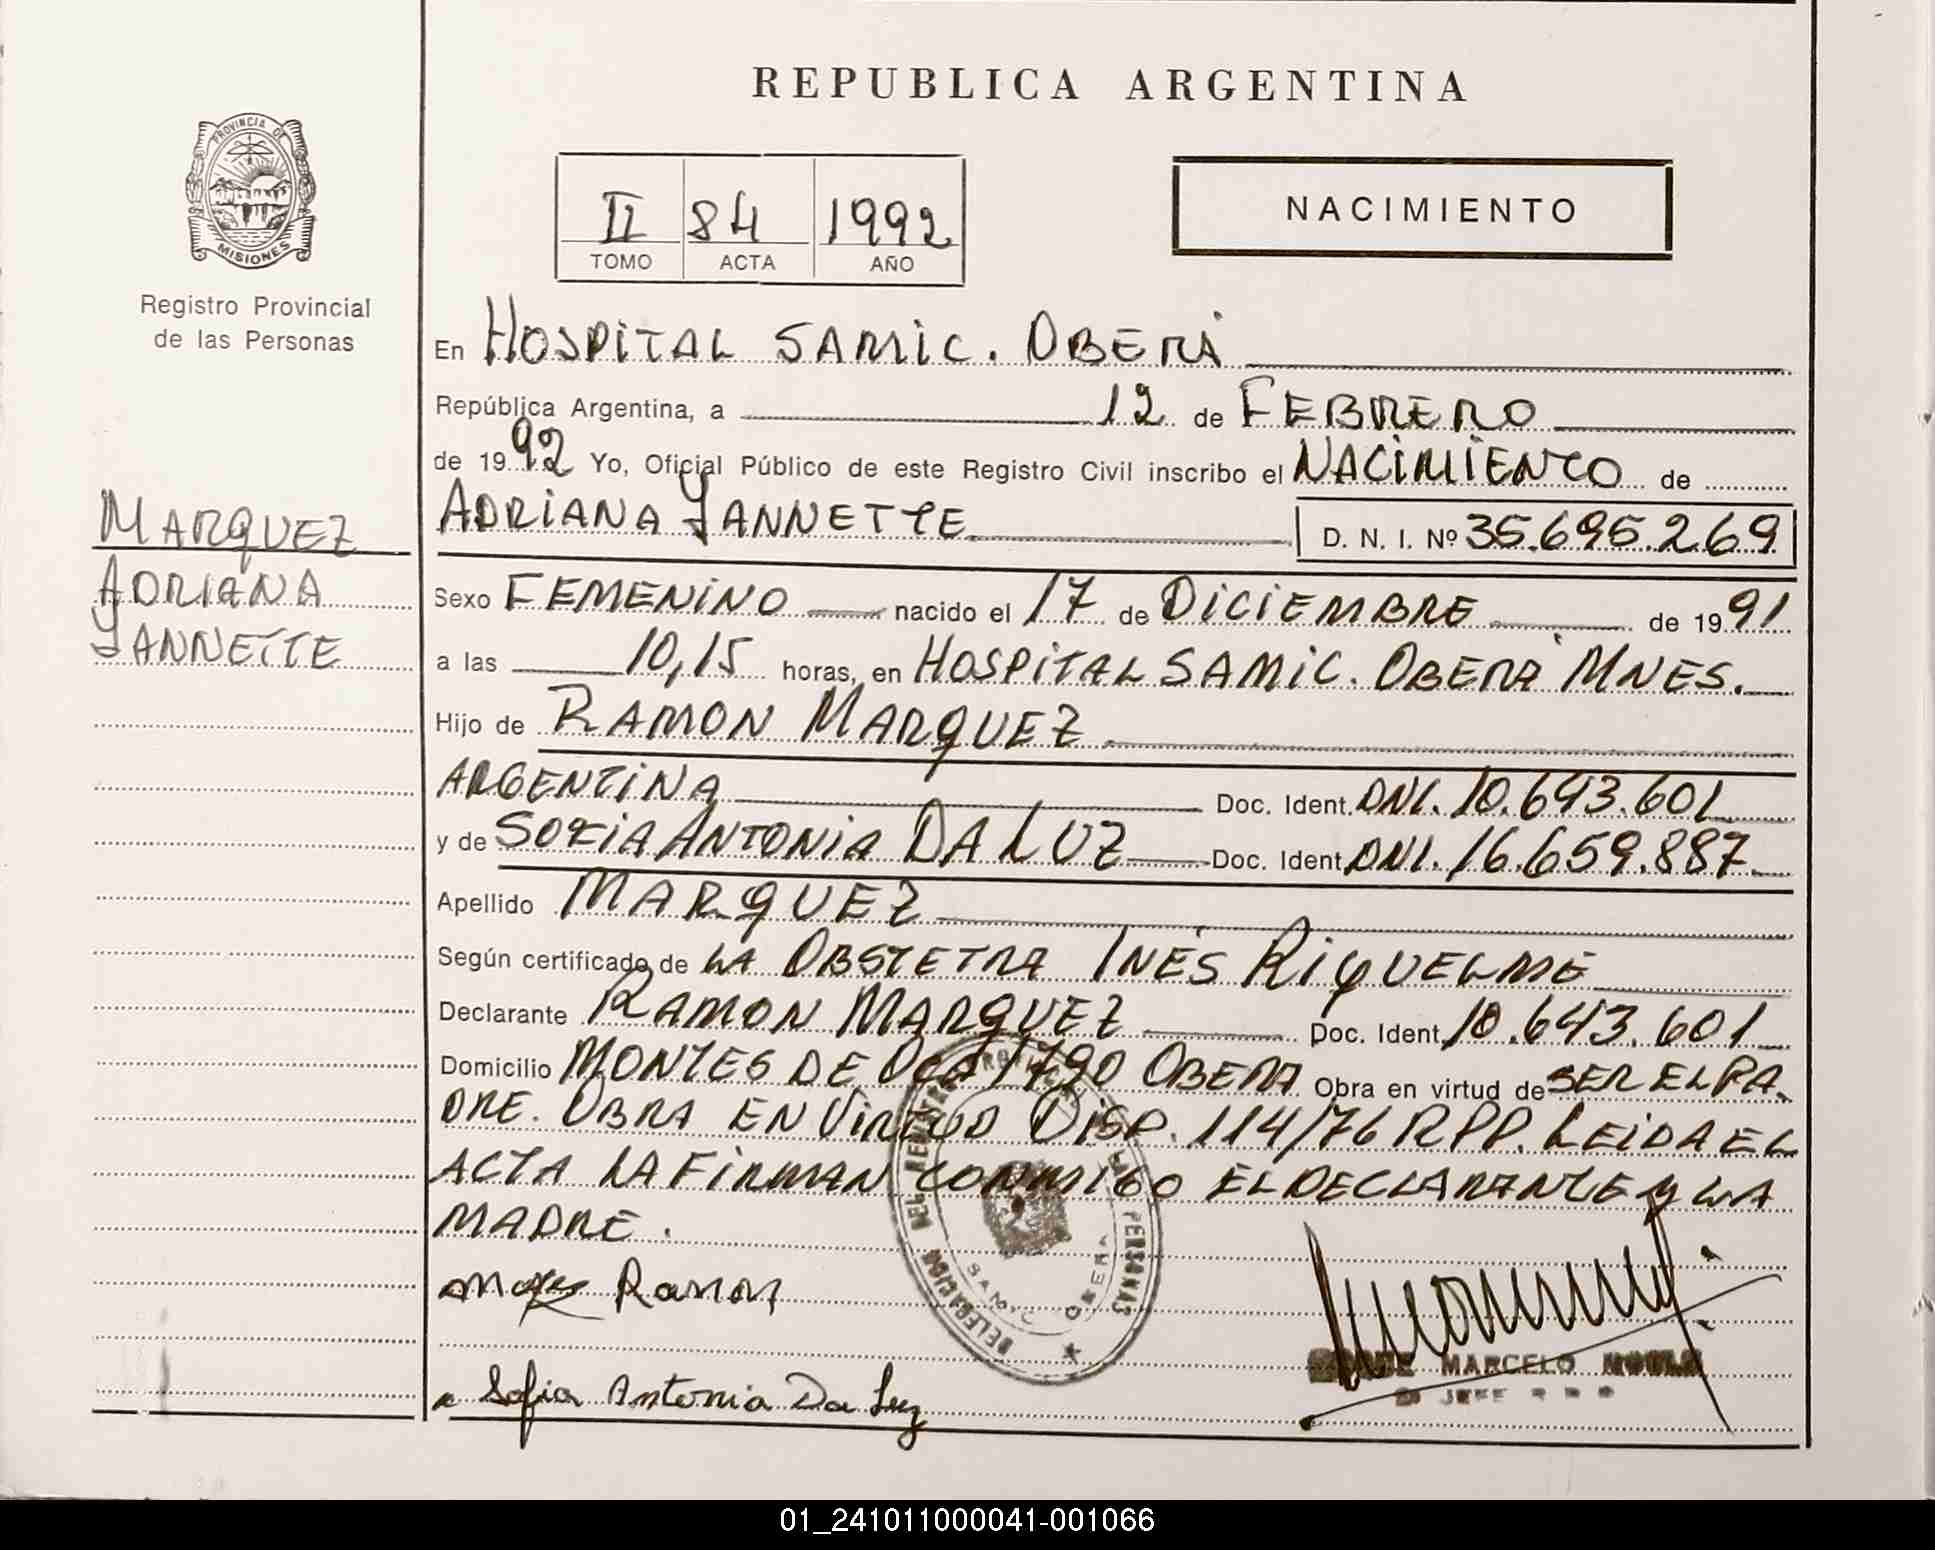 REPUBLICA ARGENTINA
PROVINCIA DE MISIONES
Registro Provincial
de las Personas
II 84 1992
TOMO ACTA AÑO
NACIMIENTO
En HOSPITAL SAMIC. OBERÁ
República Argentina, a 12 de FEBRERO
de 1992 Yo, Oficial Público de este Registro Civil inscribo el NACIMIENTO de
ADRIANA YANNETTE D. N. I. Nº 35.695.269
MARQUEZ
ADRIANA
YANNETTE
Sexo FEMENINO nacido el 17 de DICIEMBRE de 1991
a las 10,15 horas, en HOSPITAL SAMIC. OBERÁ MNES.
Hijo de RAMON MARQUEZ
ARGENTINA Doc. Ident. DNI. 10.643.601
y de SOFIA ANTONIA DA LUZ Doc. Ident. DNI. 16.659.887
Apellido MARQUEZ
Según certificado de LA OBSTETRA INÉS RIQUELME
Declarante RAMON MARQUEZ Doc. Ident. 10.643.601
Domicilio MONTES DE OCA 1790 OBERA Obra en virtud de SER EL PA-
DRE. OBRA EN VIRTUD DISP. 114/76 RPP. LEIDA EL
ACTA LA FIRMAN CONMIGO EL DECLARANTE Y LA
MADRE.
Ramon
Sofia Antonia Da Luz
DELEGACION DEL REGISTRO PROVINCIAL DE LAS PERSONAS
SAMIC OBERA
MARCELO
JEFE
01_241011000041-001066